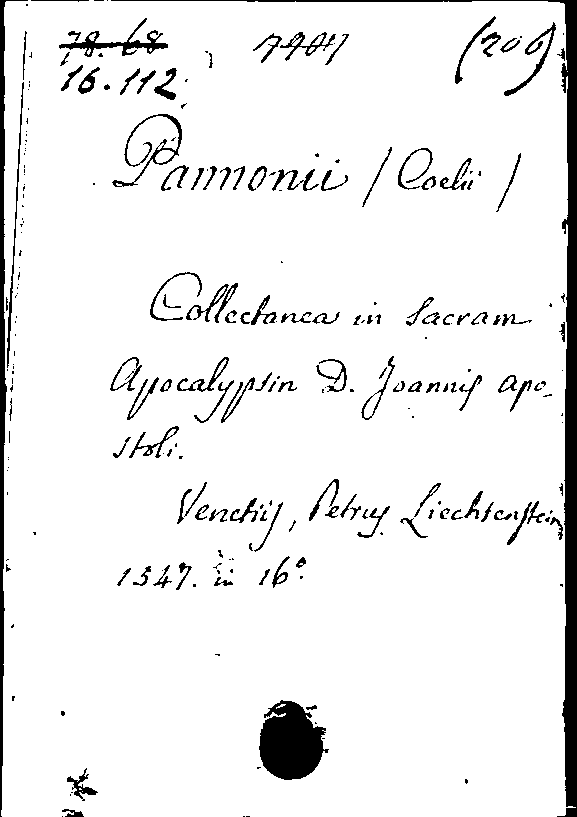 78.68 7907 (206)
16.112
Pannonii / Coelii /
Collectanea in sacram
Apocalypsin D. Joannis apo-
stoli.
Venetiis, Petrus Liechtenstein
1547. in 16°.